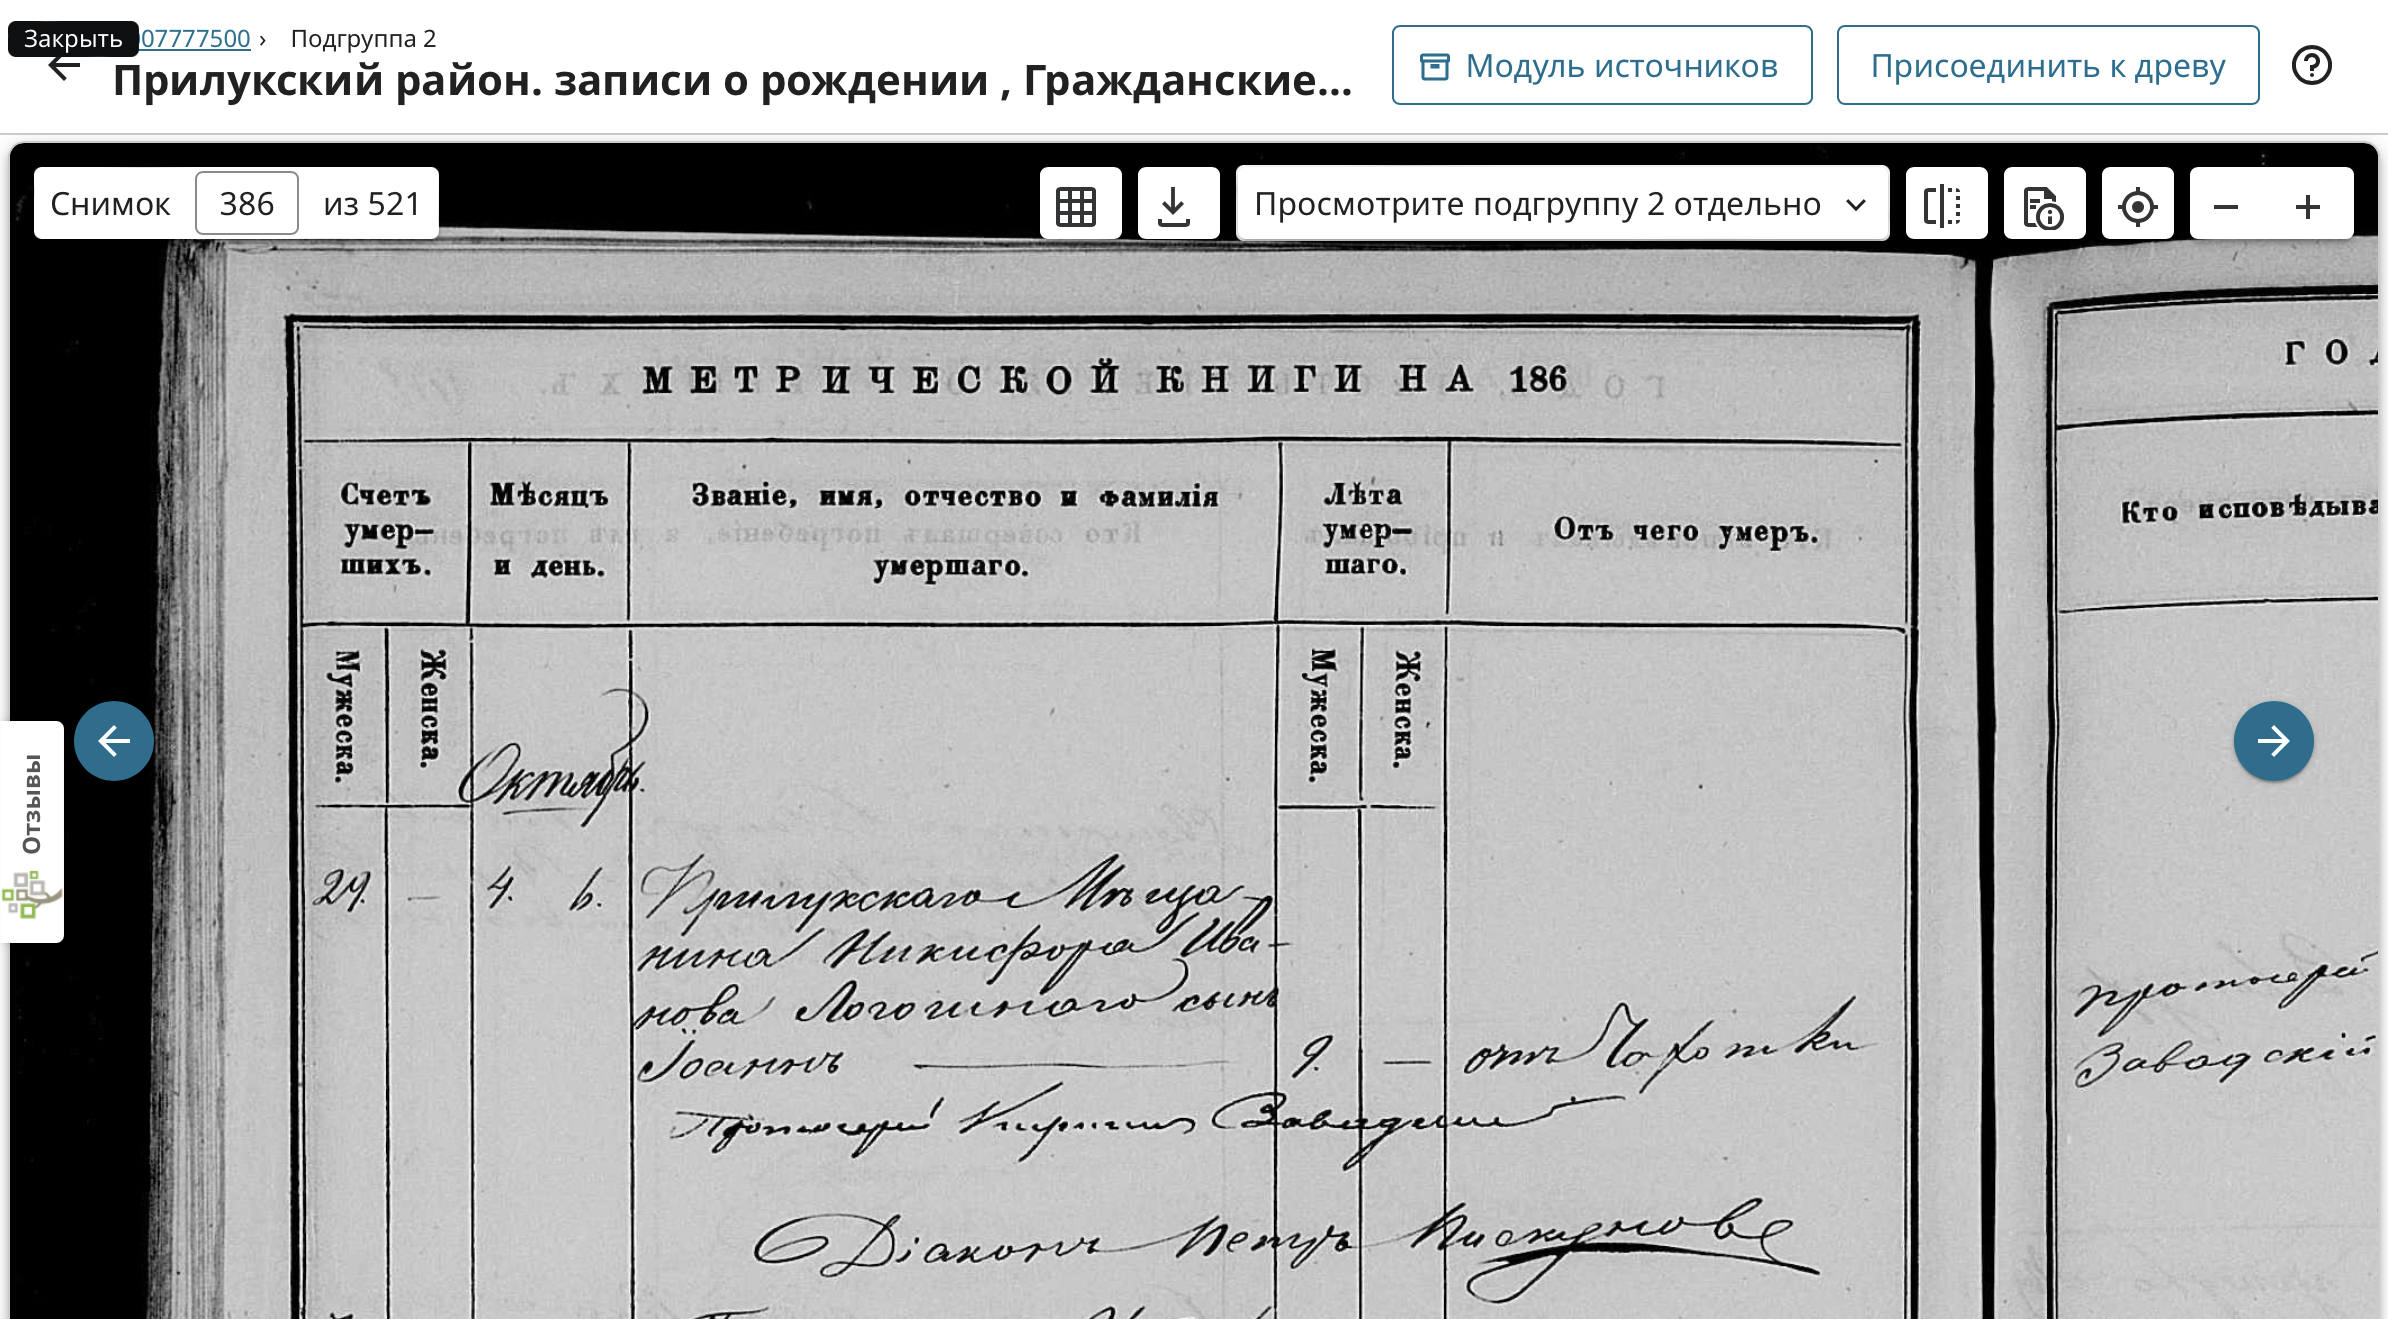 Закрыть
07777500 › Подгруппа 2
Прилукский район. записи о рождении , Гражданские...
Модуль источников
Присоединить к древу
Снимок 386 из 521
Просмотрите подгруппу 2 отдельно
Отзывы
МЕТРИЧЕСКОЙ КНИГИ НА 186
ГОД
Счетъ умер—шихъ.
Мѣсяцъ и день.
Званіе, имя, отчество и фамилія умершаго.
Лѣта умер—шаго.
Отъ чего умеръ.
Кто исповѣдыва
Мужеска.
Женска.
Мужеска.
Женска.
Октябрь.
29. — 4. 6. Прилукскаго Мѣща-
нина Никифора Ива-
нова Логогинаго сынъ
Іоаннъ — 9. — отъ Чахотки
протоерей
Завадскій
Протоіерей Кириллъ Завадскій
Діаконъ Петръ Пискуновъ